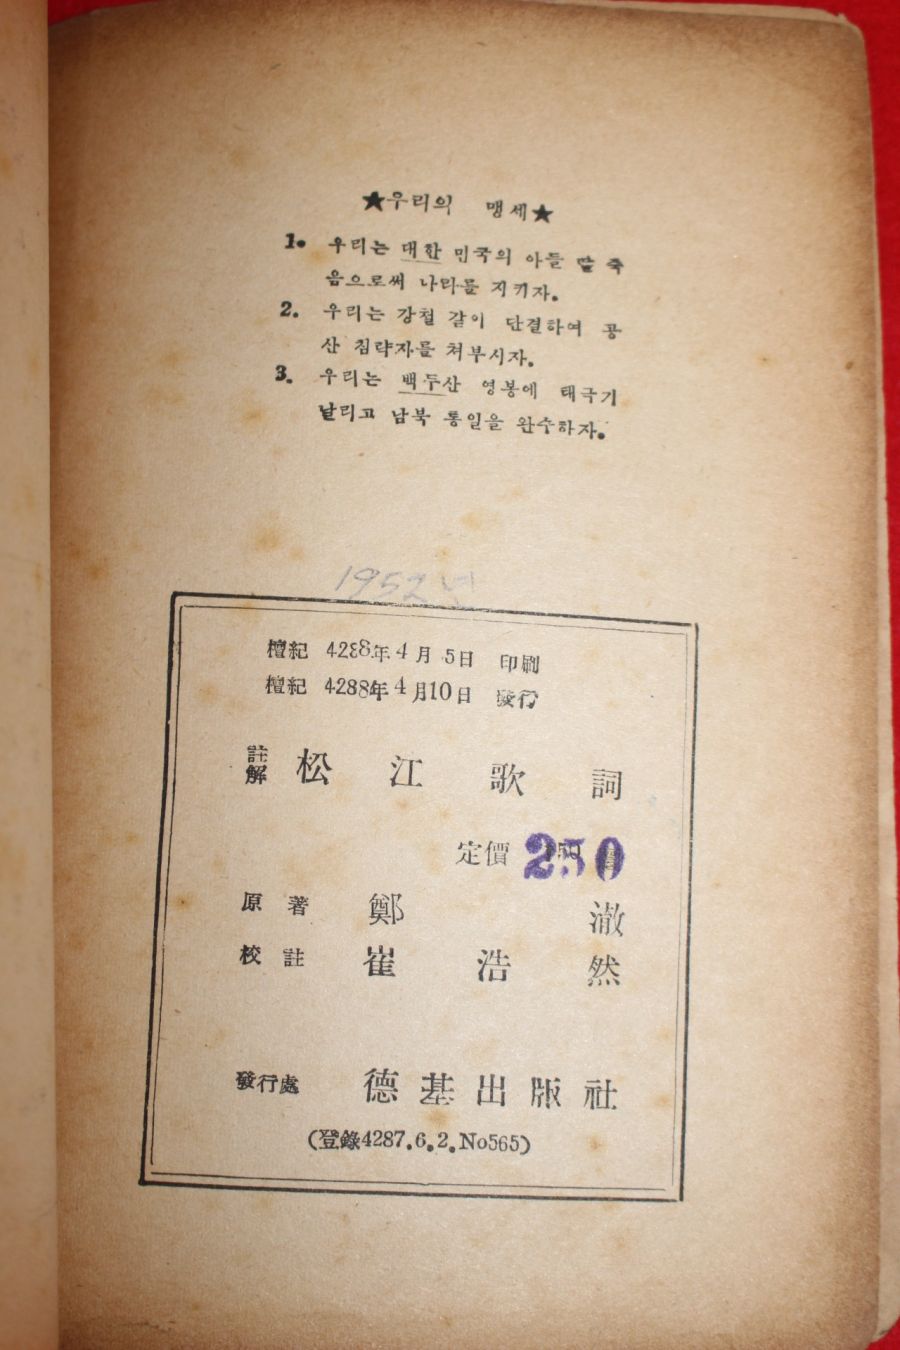 ★우리의 맹세★
1. 우리는 대한 민국의 아들 딸 죽
음으로써 나라를 지키자.
2. 우리는 강철 같이 단결하여 공
산 침략자를 쳐부시자.
3. 우리는 백두산 영봉에 태극기
날리고 남북 통일을 완수하자.
1952년
檀紀 4288年 4月 5日 印刷
檀紀 4288年 4月10日 發行
註解 松江歌詞
定價 250
原著 鄭澈
校註 崔浩然
發行處 德基出版社
(登錄4287.6.2.No565)